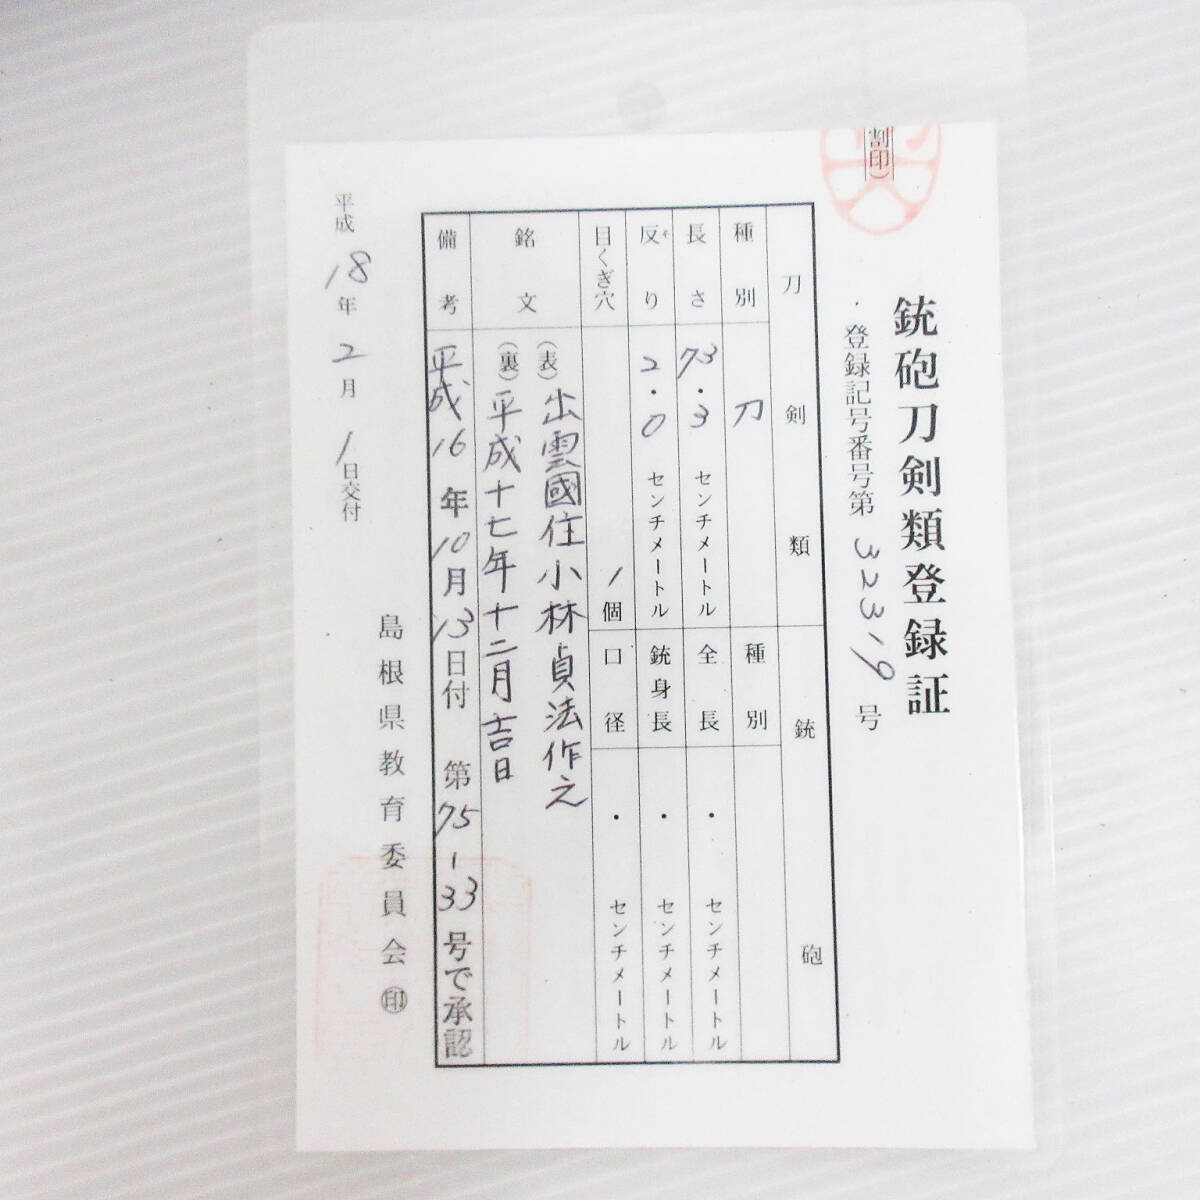 (割印)
銃砲刀剣類登録証
登録記号番号第32319号
刀剣類
銃砲
種別
刀
種別
長さ
73.3センチメートル
全長
・センチメートル
反り
そ
2.0センチメートル
銃身長
・センチメートル
目くぎ穴
1個
口径
・センチメートル
銘文
(表)出雲國住小林貞法作之
(裏)平成十七年十二月吉日
備考
平成16年10月13日付 第75-33号で承認
島根県教育委員会㊞
平成18年2月1日交付